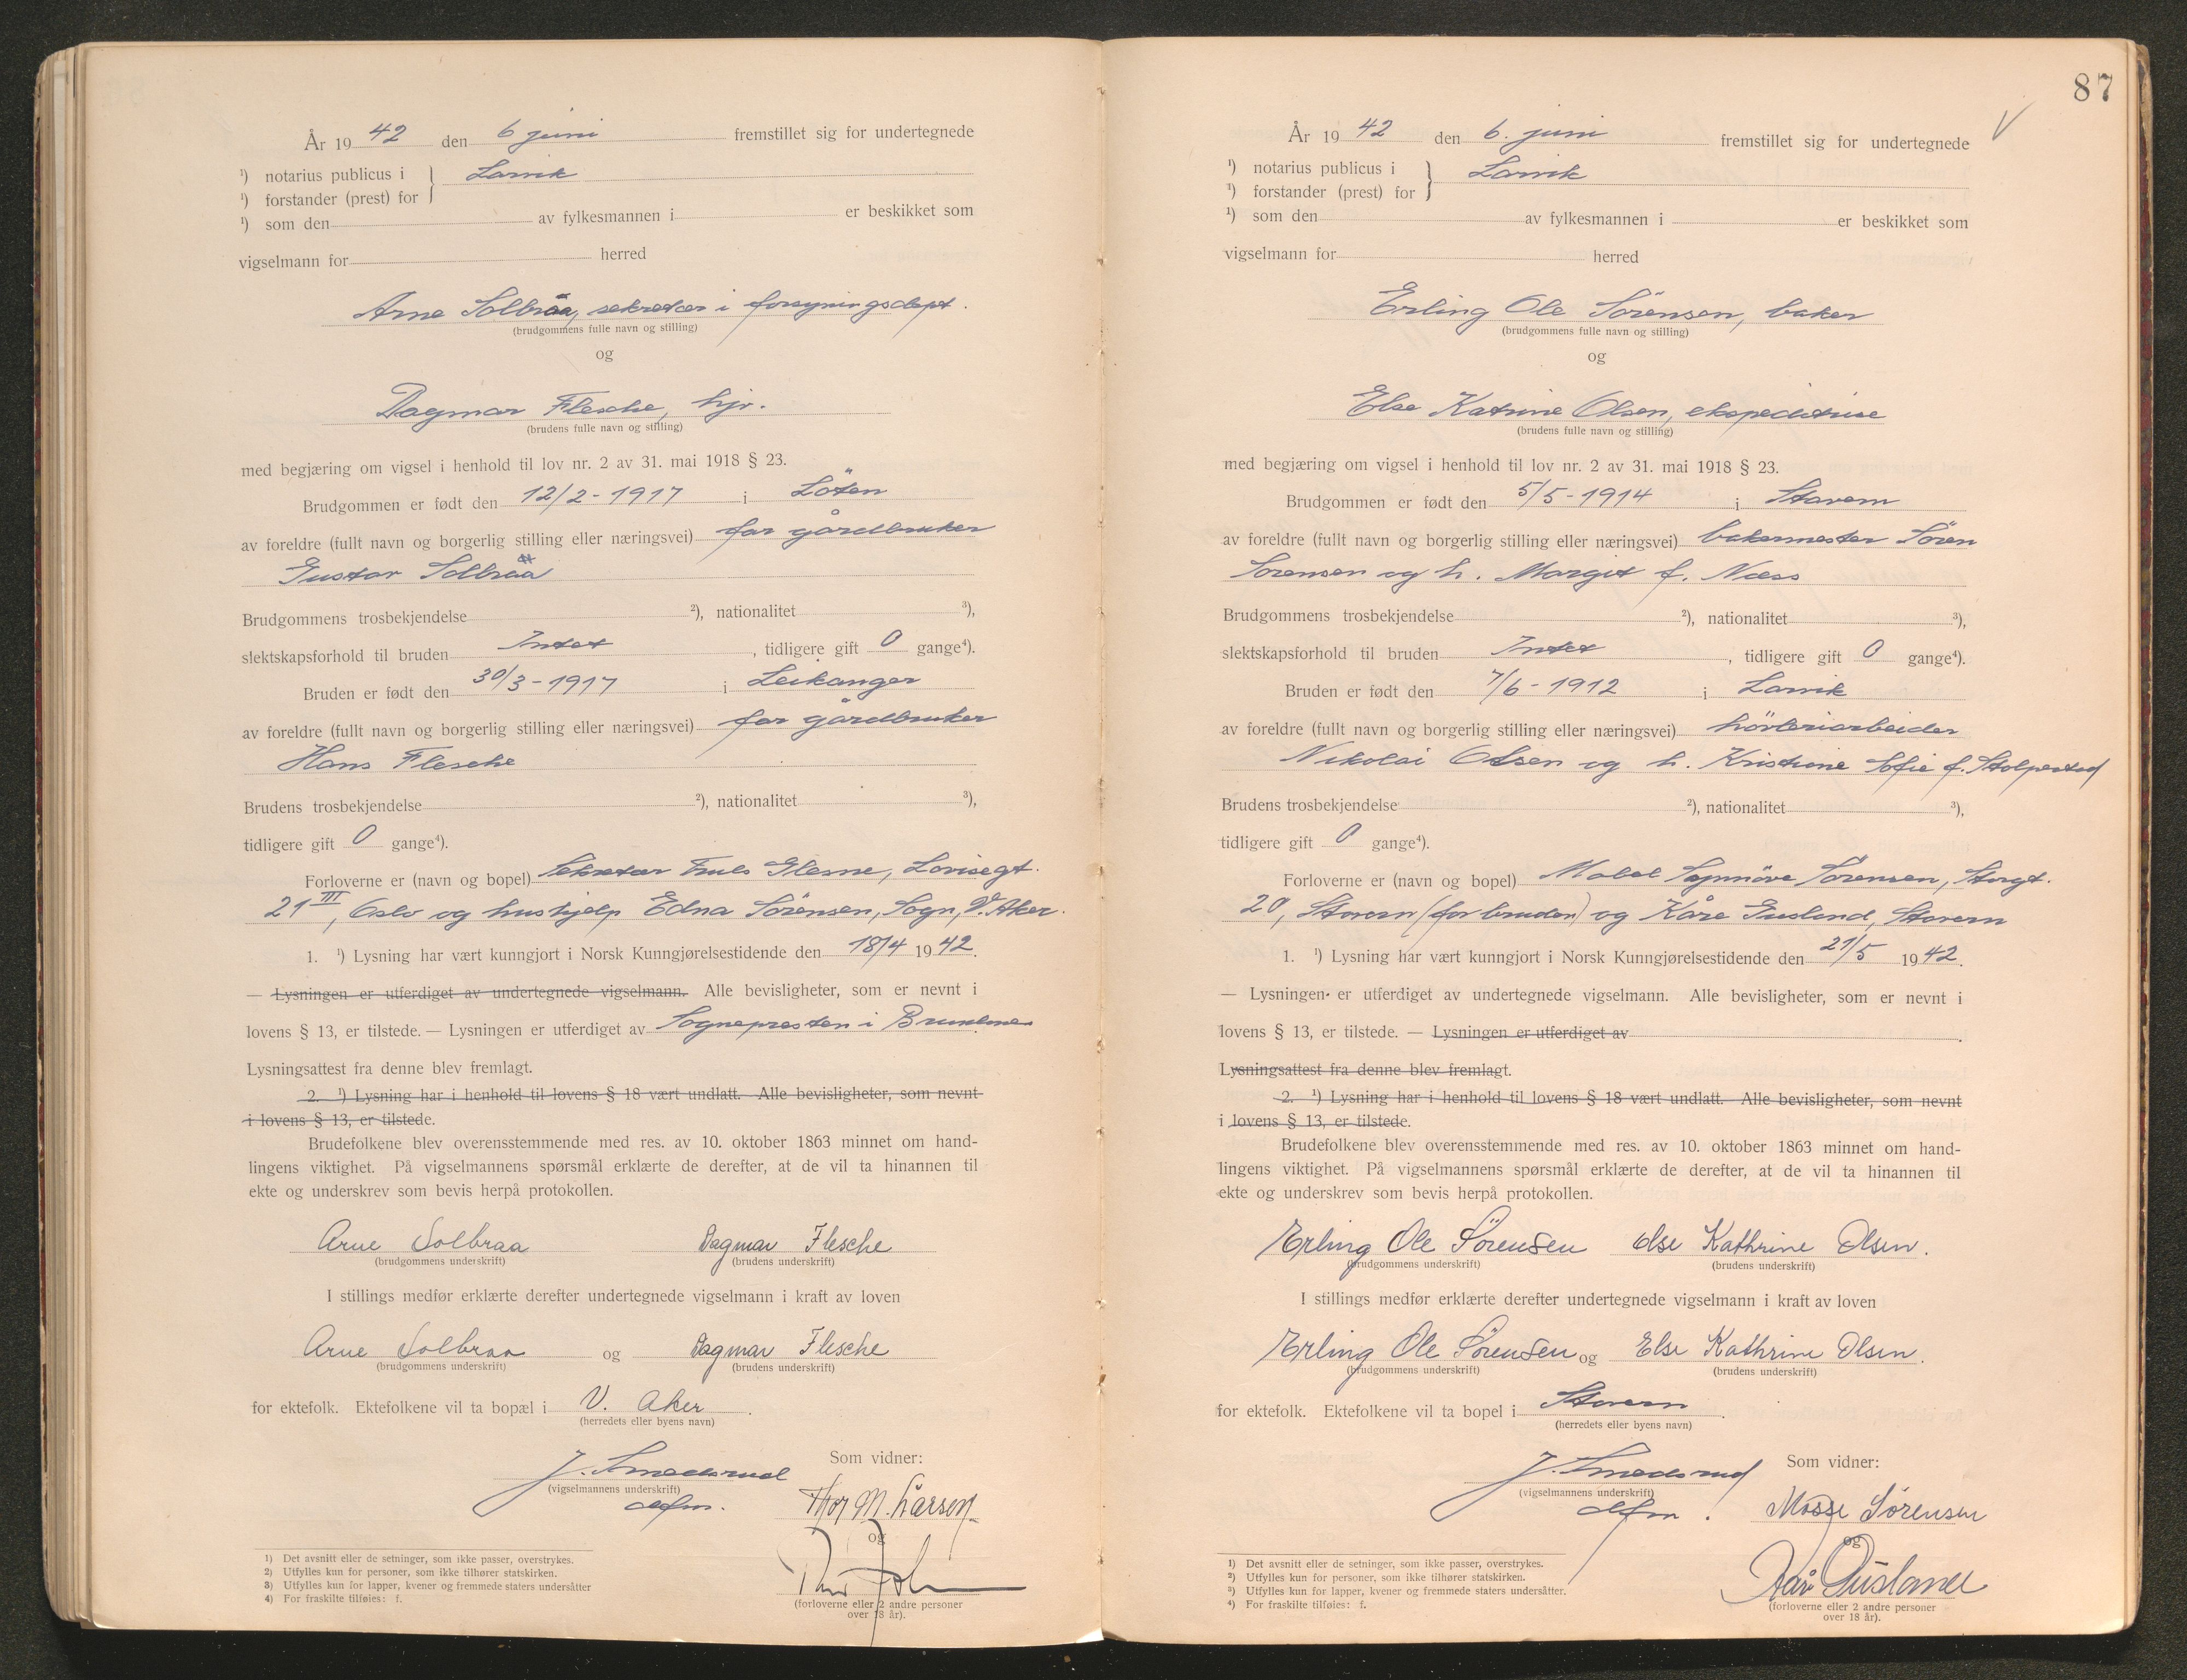 År 19 42 den 6 juni fremstillet sig for undertegnede
¹) notarius publicus i } Larvik
¹) forstander (prest) for
¹) som den av fylkesmannen i er beskikket som
vigselmann for herred
Arne Solbraa, sekretær i forsyningsdept.
(brudgommens fulle navn og stilling)
og
Dagmar Flesche, hjv.
(brudens fulle navn og stilling)
med begjæring om vigsel i henhold til lov nr. 2 av 31. mai 1918 § 23.
Brudgommen er født den 12/2-1917 i Löten
av foreldre (fullt navn og borgerlig stilling eller næringsvei) far gårdbruker
Gustav Solbraa
Brudgommens trosbekjendelse ²), nationalitet ³),
slektskapsforhold til bruden Intet, tidligere gift 0 gange⁴).
Bruden er født den 30/3-1917 i Leikanger
av foreldre (fullt navn og borgerlig stilling eller næringsvei) far gårdbruker
Hans Flesche
Brudens trosbekjendelse ²), nationalitet ³),
tidligere gift 0 gange⁴).
Forloverne er (navn og bopel) Sekretær Glesne, Lovisegt.
21 III, Oslo og hushjelp Edna Sörensen, Sogn, V. Aker.
1. ¹) Lysning har vært kunngjort i Norsk Kunngjørelsestidende den 18/4 1942.
— Lysningen er utferdiget av undertegnede vigselmann. Alle bevisligheter, som er nevnt i
lovens § 13, er tilstede. — Lysningen er utferdiget av Sognepresten i
Lysningsattest fra denne blev fremlagt.
2. ¹) Lysning har i henhold til lovens § 18 vært undlatt. Alle bevisligheter, som nevnt
i lovens § 13, er tilstede.
Brudefolkene blev overensstemmende med res. av 10. oktober 1863 minnet om hand-
lingens viktighet. På vigselmannens spørsmål erklærte de derefter, at de vil ta hinannen til
ekte og underskrev som bevis herpå protokollen.
Arne Solbraa Dagmar Flesche
(brudgommens underskrift) (brudens underskrift)
I stillings medfør erklærte derefter undertegnede vigselmann i kraft av loven
Arne Solbraa og Dagmar Flesche
(brudgommens underskrift) (brudens underskrift)
for ektefolk. Ektefolkene vil ta bopæl i V. Aker.
(herredets eller byens navn)
J. Smedsrud Som vidner:
(vigselmannens underskrift)
Thor M. Larsen
og
(forloverne eller 2 andre personer
over 18 år).
1) Det avsnitt eller de setninger, som ikke passer, overstrykes.
2) Utfylles kun for personer, som ikke tilhører statskirken.
3) Utfylles kun for lapper, kvener og fremmede staters undersåtter
4) For fraskilte tilføies: f.
87
År 19 42 den 6. juni fremstillet sig for undertegnede
¹) notarius publicus i } Larvik
¹) forstander (prest) for
¹) som den av fylkesmannen i er beskikket som
vigselmann for herred
Erling Ole Sörensen, baker
(brudgommens fulle navn og stilling)
og
Else Katrine Olsen, ekspeditrise
(brudens fulle navn og stilling)
med begjæring om vigsel i henhold til lov nr. 2 av 31. mai 1918 § 23.
Brudgommen er født den 5/5-1914 i Stavern
av foreldre (fullt navn og borgerlig stilling eller næringsvei) bakermester Sören
Sorensen og h. Margit f. Næss
Brudgommens trosbekjendelse ²), nationalitet ³),
slektskapsforhold til bruden Intet, tidligere gift 0 gange⁴).
Bruden er født den 7/6-1912 i Larvik
av foreldre (fullt navn og borgerlig stilling eller næringsvei) hövleriarbeider
Nikolai Olsen og h. Kristine Sofie f. Stolpestad
Brudens trosbekjendelse ²), nationalitet ³),
tidligere gift 0 gange⁴).
Forloverne er (navn og bopel) Mabel Synnöve Sörensen, Storgt.
20, Stavern (for bruden) og Kåre Gusland, Stavern
1. ¹) Lysning har vært kunngjort i Norsk Kunngjørelsestidende den 21/5 1942.
— Lysningen er utferdiget av undertegnede vigselmann. Alle bevisligheter, som er nevnt i
lovens § 13, er tilstede. — Lysningen er utferdiget av.
Lysningsattest fra denne blev fremlagt.
2. ¹) Lysning har i henhold til lovens § 18 vært undlatt. Alle bevisligheter, som nevnt
i lovens § 13, er tilstede.
Brudefolkene blev overensstemmende med res. av 10. oktober 1863 minnet om hand-
lingens viktighet. På vigselmannens spørsmål erklærte de derefter, at de vil ta hinannen til
ekte og underskrev som bevis herpå protokollen.
Erling Ole Sörensen Else Kathrine Olsen.
(brudgommens underskrift) (brudens underskrift)
I stillings medfør erklærte derefter undertegnede vigselmann i kraft av loven
Erling Ole Sörensen og Else Kathrine Olsen.
(brudgommens underskrift) (brudens underskrift)
for ektefolk. Ektefolkene vil ta bopel i Stavern.
(herredets eller byens navn)
J. Smedsrud Som vidner:
(vigselmannens underskrift)
Mosse Sörensen
og
Kåre Gusland
(forloverne eller 2 andre personer
over 18 år).
¹) Det avsnitt eller de setninger, som ikke passer, overstrykes.
²) Utfylles kun for personer, som ikke tilhører statskirken.
³) Utfylles kun for lapper, kvener og fremmede staters undersåtter.
⁴) For fraskilte tilføies: f.